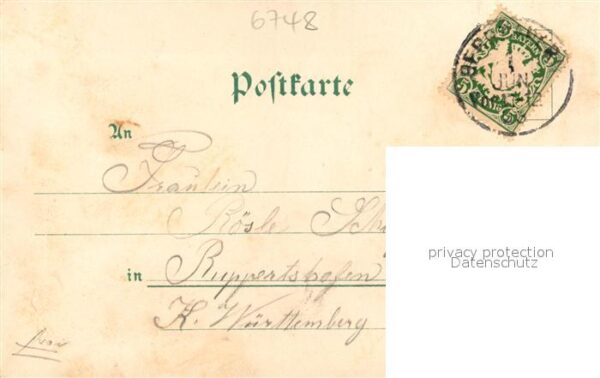 6748
Postkarte
BAYERN
JUN
An
Fräulein
Rösle
in Ruppertshofen
K. Württemberg
privacy protection
Datenschutz